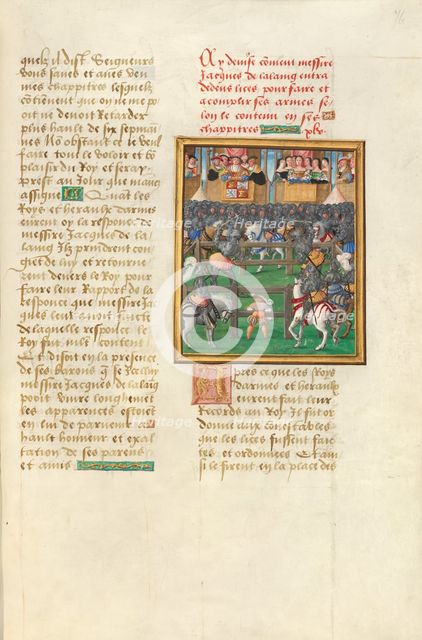 quelz il dist Seigneurs
vous saves et aues veu
mes chappitres lesquelz
côtiênent que on ne me po
oit ne deuoit Retarder
plus hault de six sepmai
nes Nô obstant ce Je veul
faire tout le voloir et bô
plaisir du Roy et seray
prest au Jour que mauez
assigne Quât les
Roys et heraulx darmes
eurent oy la response de
messire Jacques de la la
laing Ilz prindrent con
giet de luy et retourne
rent deuers le Roy pour
faire leur Rapport de la
Responce que messire Jac
ques leur auoit faicte
de laquelle responce le
Roy fut mlt content
Et disoit en la presence
de ses barons q se Icelluy
messire Jacques de lalaig
pooit viure longhemêt
les apparences estoiêt
en luy de paruenir a
hault honneur et exal
tation de ses parens
et amis
Cy deuise cômêt messire
Jacques de lalaing entra
dedens lices pour faire et
acomplir ses armes se
lon le contenu en ses
chappitres
Apres ce que les Roys
darmes et heraulx
eurent fait leur
Recors au Roy Il fut or
donne aux conestables
que les lices fussent fai
tes et ordonnees Et ain
si le firent en la place des
Heritage
Images